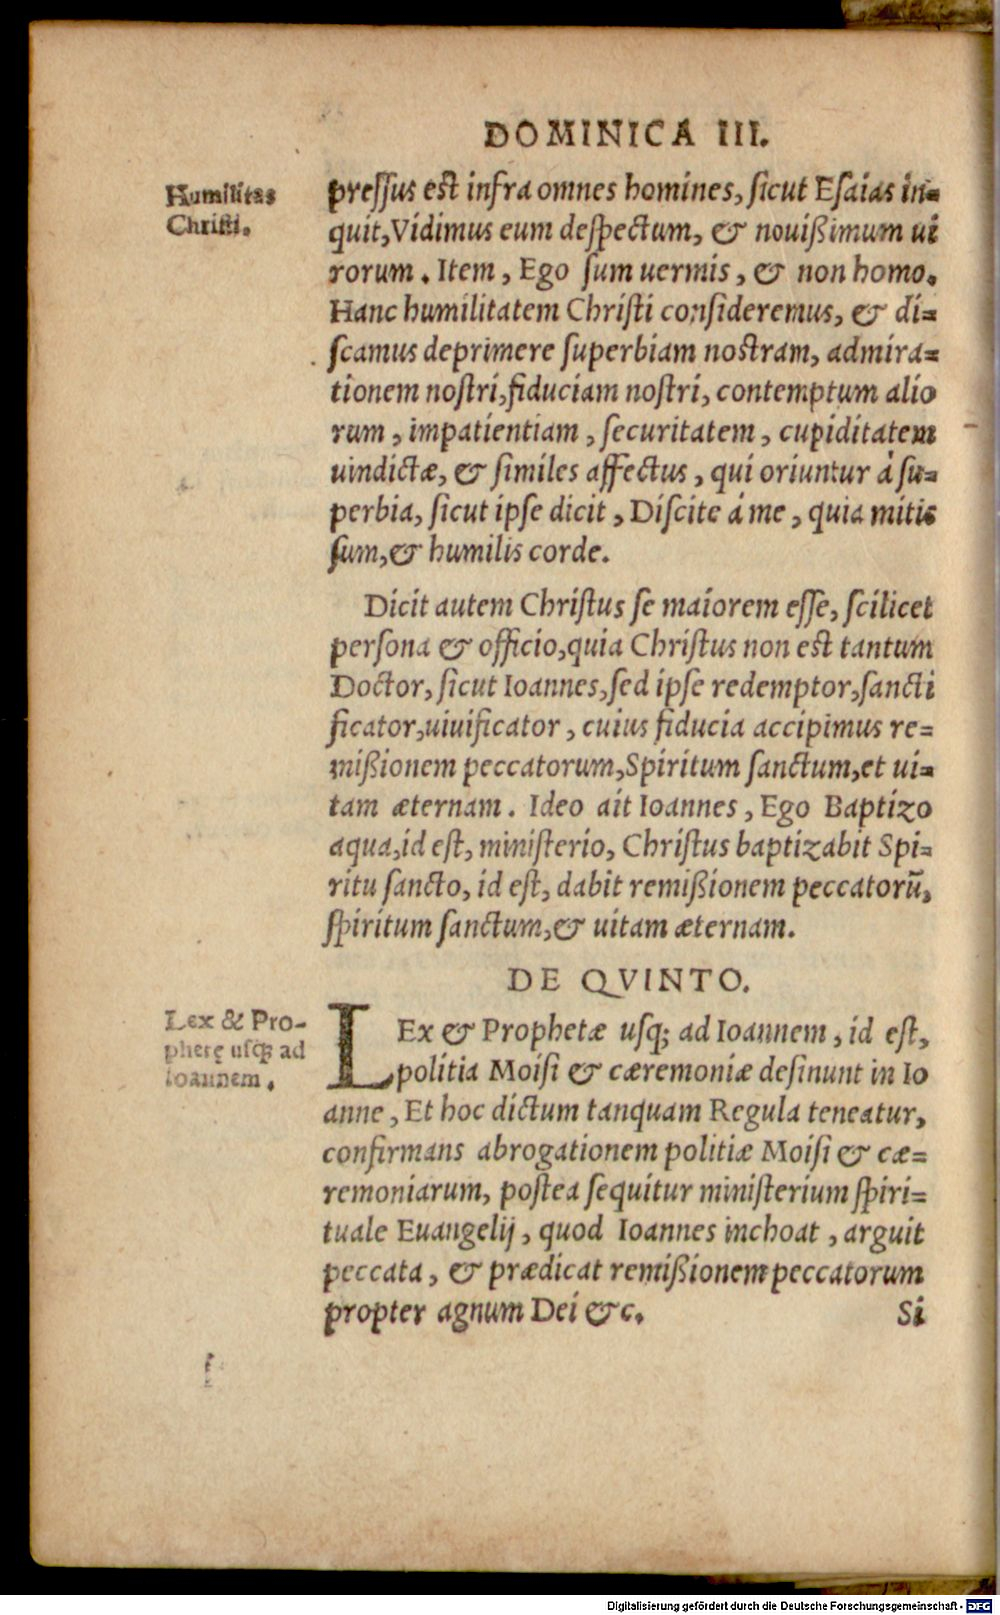 DOMINICA III.
Humilitas
Christi.
pressus est infra omnes homines, sicut Esaias in=
quit, Vidimus eum despectum, & nouißimum ui
rorum. Item, Ego sum uermis, & non homo.
Hanc humilitatem Christi consideremus, & di=
scamus deprimere superbiam nostram, admira=
tionem nostri, fiduciam nostri, contemptum alio
rum, impatientiam, securitatem, cupiditatem
uindictæ, & similes affectus, qui oriuntur à su=
perbia, sicut ipse dicit, Discite á me, quia mitis
sum, & humilis corde.
Dicit autem Christus se maiorem esse, scilicet
persona & officio, quia Christus non est tantum
Doctor, sicut Ioannes, sed ipse redemptor, sancti
ficator, uiuificator, cuius fiducia accipimus re=
mißionem peccatorum, Spiritum sanctum, et ui=
tam æternam. Ideo ait Ioannes, Ego Baptizo
aqua, id est, ministerio, Christus baptizabit Spi=
ritu sancto, id est, dabit remißionem peccatorū,
spiritum sanctum, & uitam æternam.
DE QVINTO.
Lex & Pro-
phetę usq; ad
Ioannem.
LEx & Prophetæ usq; ad Ioannem, id est,
politia Moisi & cæremoniæ desinunt in Io
anne, Et hoc dictum tanquam Regula teneatur,
confirmans abrogationem politiæ Moisi & cæ=
remoniarum, postea sequitur ministerium spiri=
tuale Euangelij, quod Ioannes inchoat, arguit
peccata, & prædicat remißionem peccatorum
propter agnum Dei &c.
Si
Digitalisierung gefördert durch die Deutsche Forschungsgemeinschaft - DFG